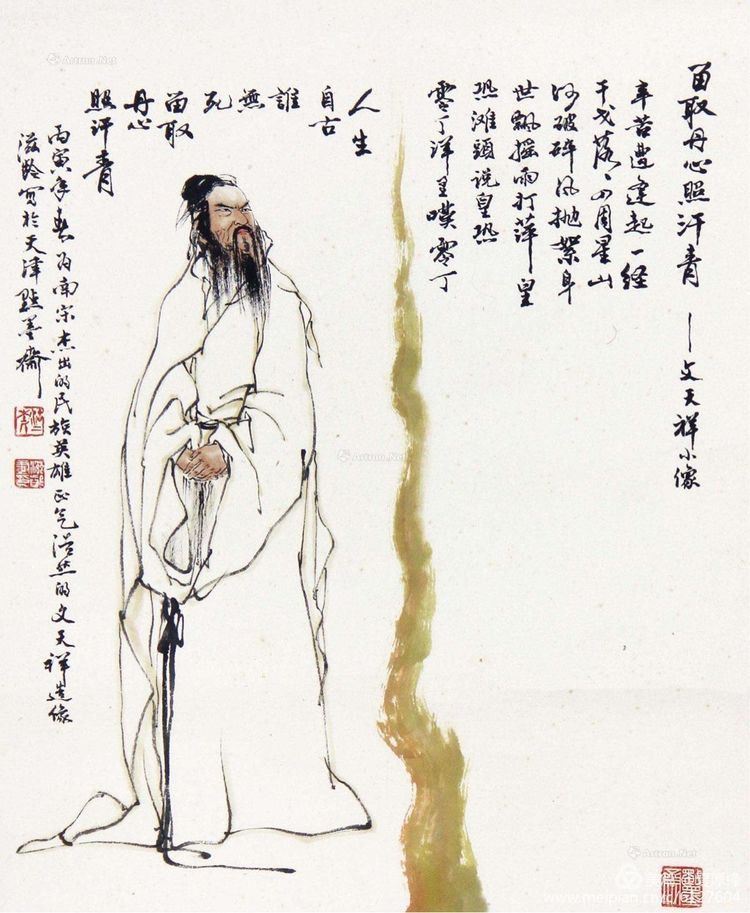 留取丹心照汗青 — 文天祥小像
辛苦遭逢起一经
干戈落〻四周星山
河破碎风抛絮身
世飘摇雨打萍皇
恐滩頭说皇恐
零丁洋里嘆零丁
人生
自古
誰
無
死
留取
丹心
照汗青
丙寅年春为南宋杰出的民族英雄正气浩然的文天祥造像
滋龄写於天津點墨斋
Artron.Net
Artron.Net
Artron.Net